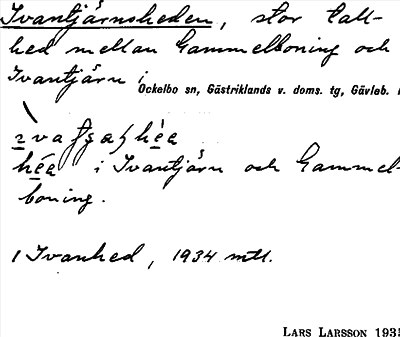 Ivantjärnsheden, stor tall-
hed mellan Gammelboning och
Ivantjärn i
Ockelbo sn, Gästriklands v. doms. tg, Gävleb.
hée i Ivantjärn och Gammel-
boning.
1 Ivanhed, 1934 mtl.
LARS LARSSON 1935